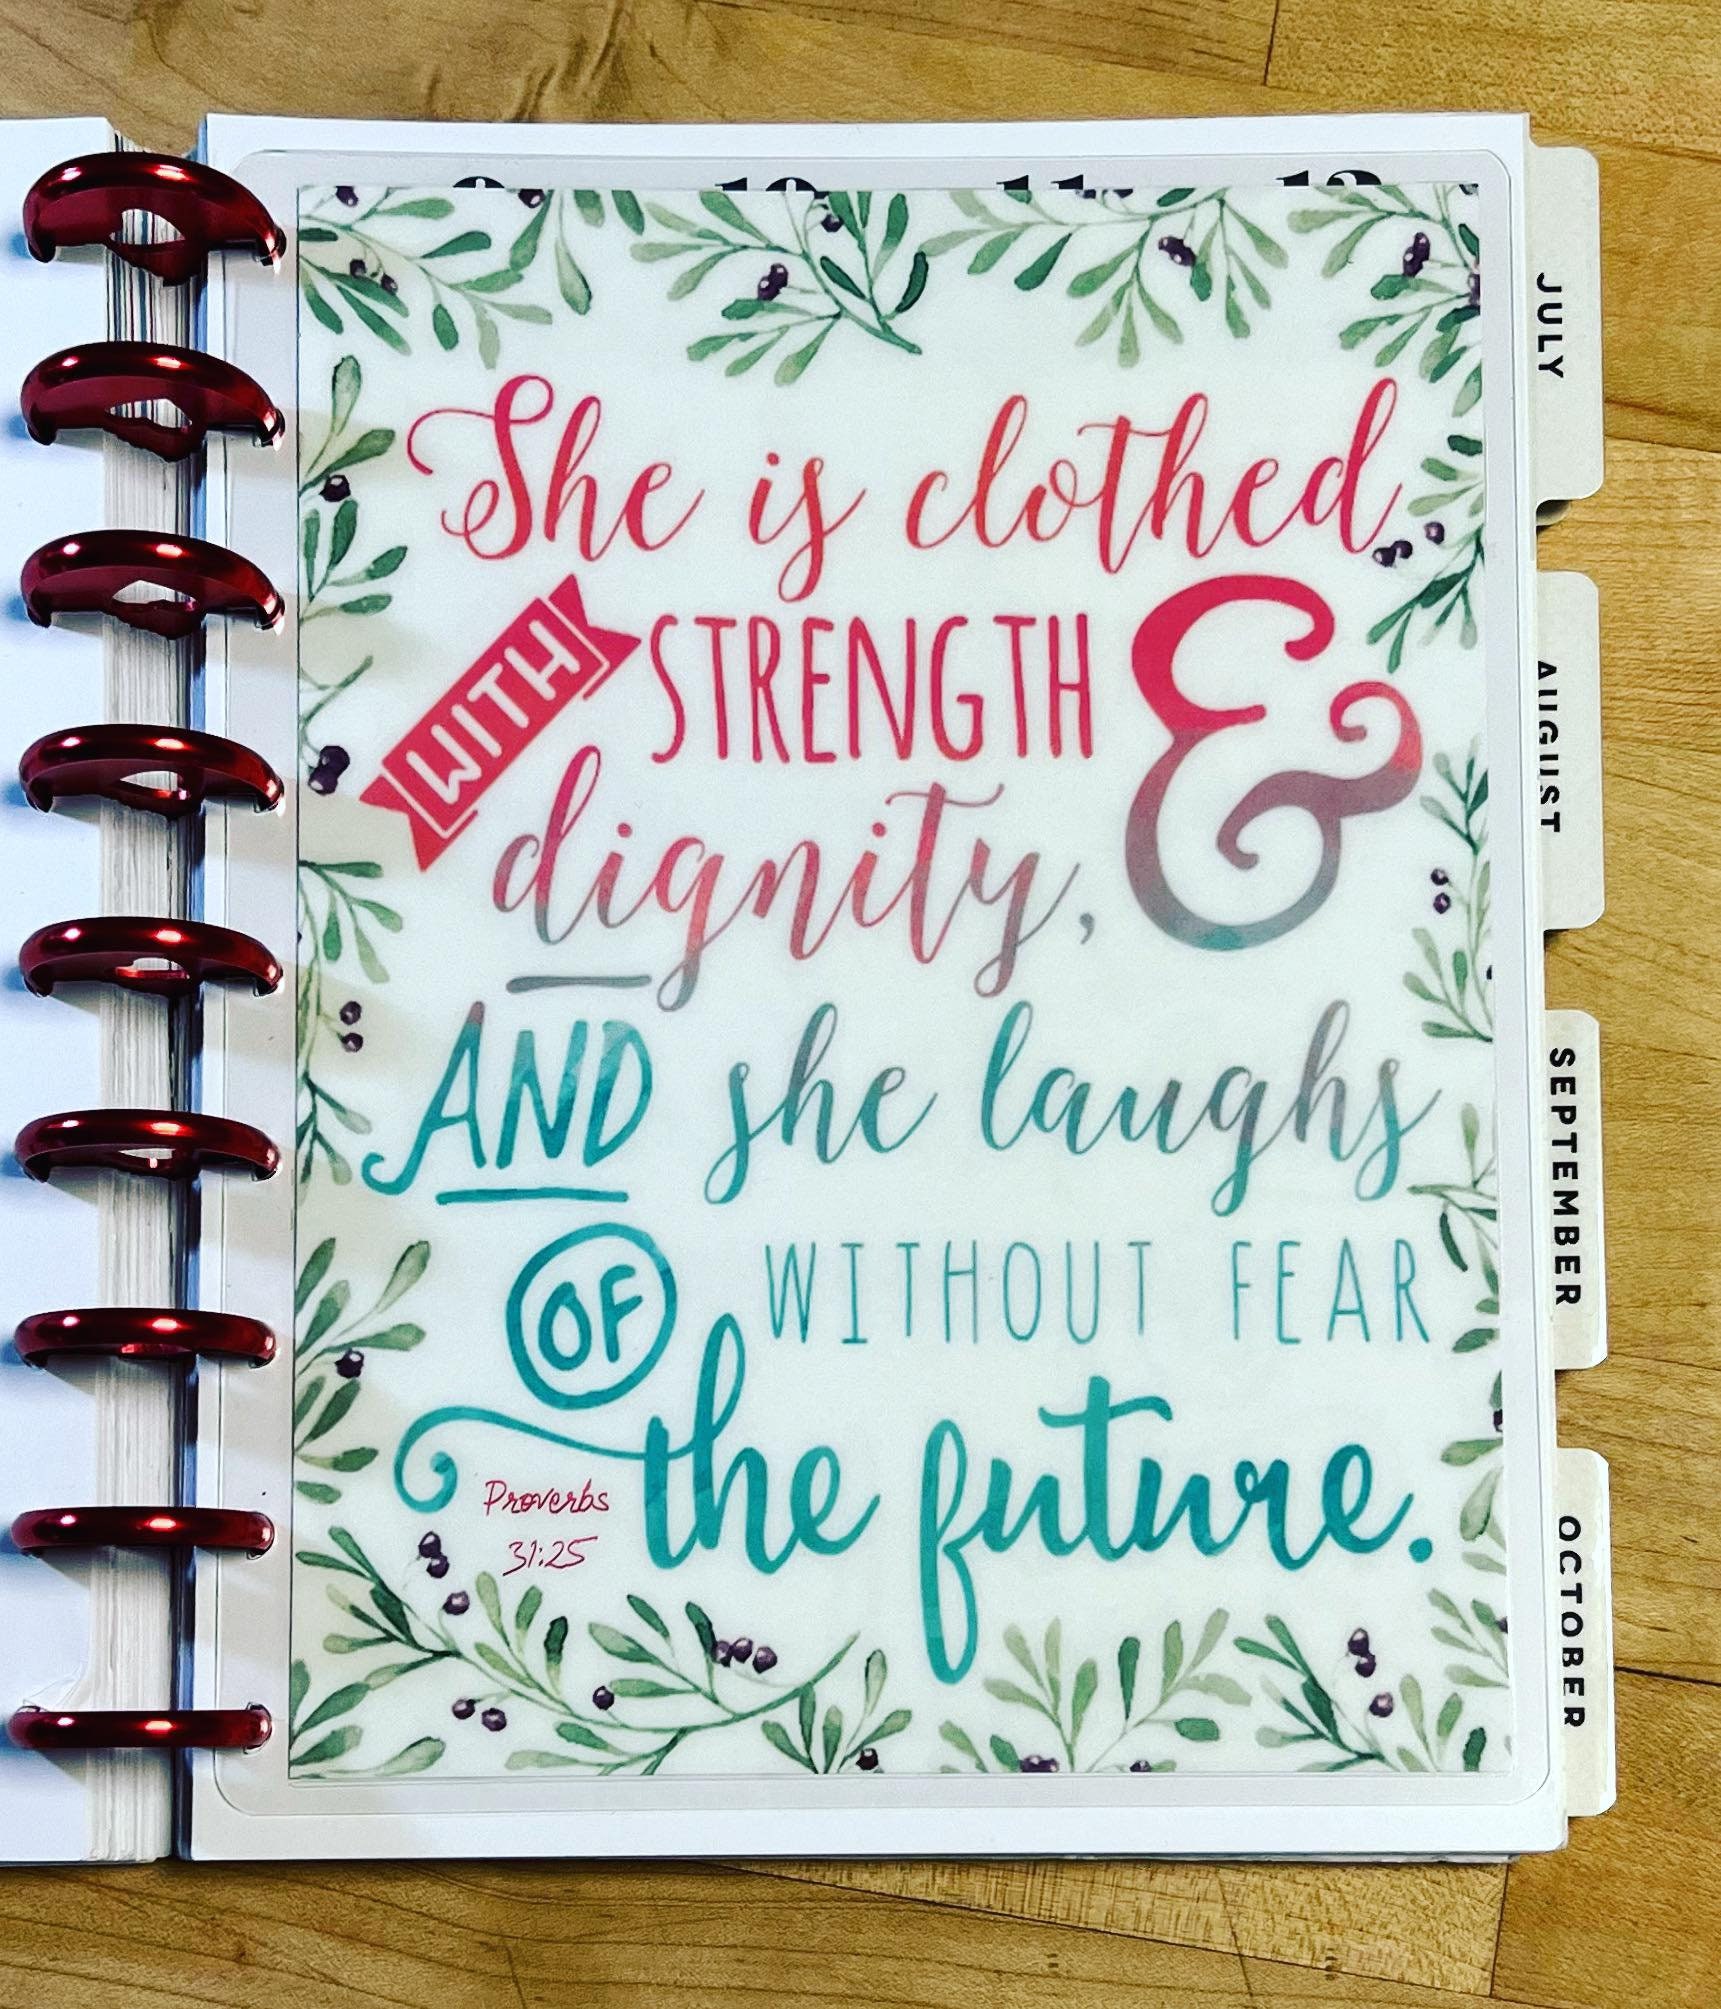 She is clothed
WITH STRENGTH &
dignity,
AND she laughs
WITHOUT FEAR
OF
the future.
Proverbs
31:25
JULY
AUGUST
SEPTEMBER
OCTOBER